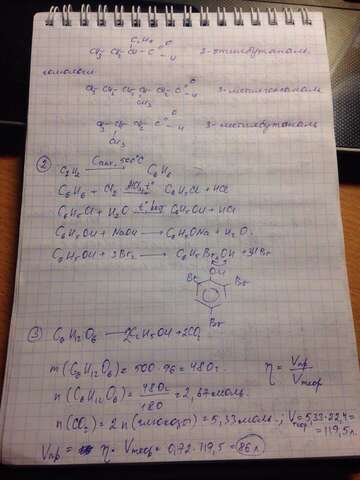 C₂H₅
CH₃ CH₂ CH – C =O –H 2-этилбутаналь
гомологи
CH₃ CH₂ CH CH₂ C =O –H
CH₃
CH₃ CH CH₂ C =O –H 3-метилбутаналь
CH₃
② C₂H₂ Cакт, 500°C → C₆H₆
C₆H₆ + Cl₂ AlCl₃, t° → C₆H₅Cl + HCl
C₆H₅Cl + H₂O t°, → C₆H₅OH + HCl
C₆H₅OH + NaOH → C₆H₅ONa + H₂O.
C₆H₅OH + 3Br₂ → Br₃OH + 3HBr
OH
Br Br
Br
③ C₆H₁₂O₆ → 2C₂H₅OH + 2CO₂
m(C₆H₁₂O₆) = 500·96 = 480г. η = Vпр/Vтеор
n(C₆H₁₂O₆) = 480г/180 = 2,67моль.
n(CO₂) = 2n(глюкозы) = 5,33моль.; Vтеор = 5,33·22,4 = 119,5л.
Vпр = η · Vтеор = 0,72·119,5 = 86л.